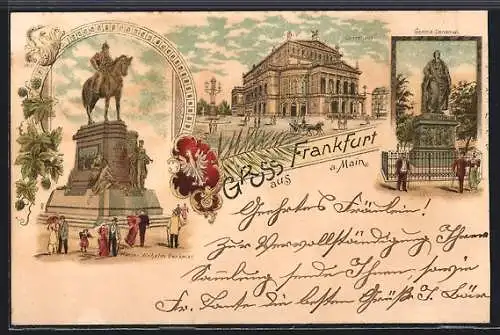 Opernhaus
Goethe Denkmal
Gruss aus Frankfurt
a Main.
Kaiser Wilhelm Denkmal
Geehrtes Fräulein!
Zur Vervollständigung Ihrer
Sammlung sende Ihnen, sowie
Fr. Tante die besten Grüße J. Bär